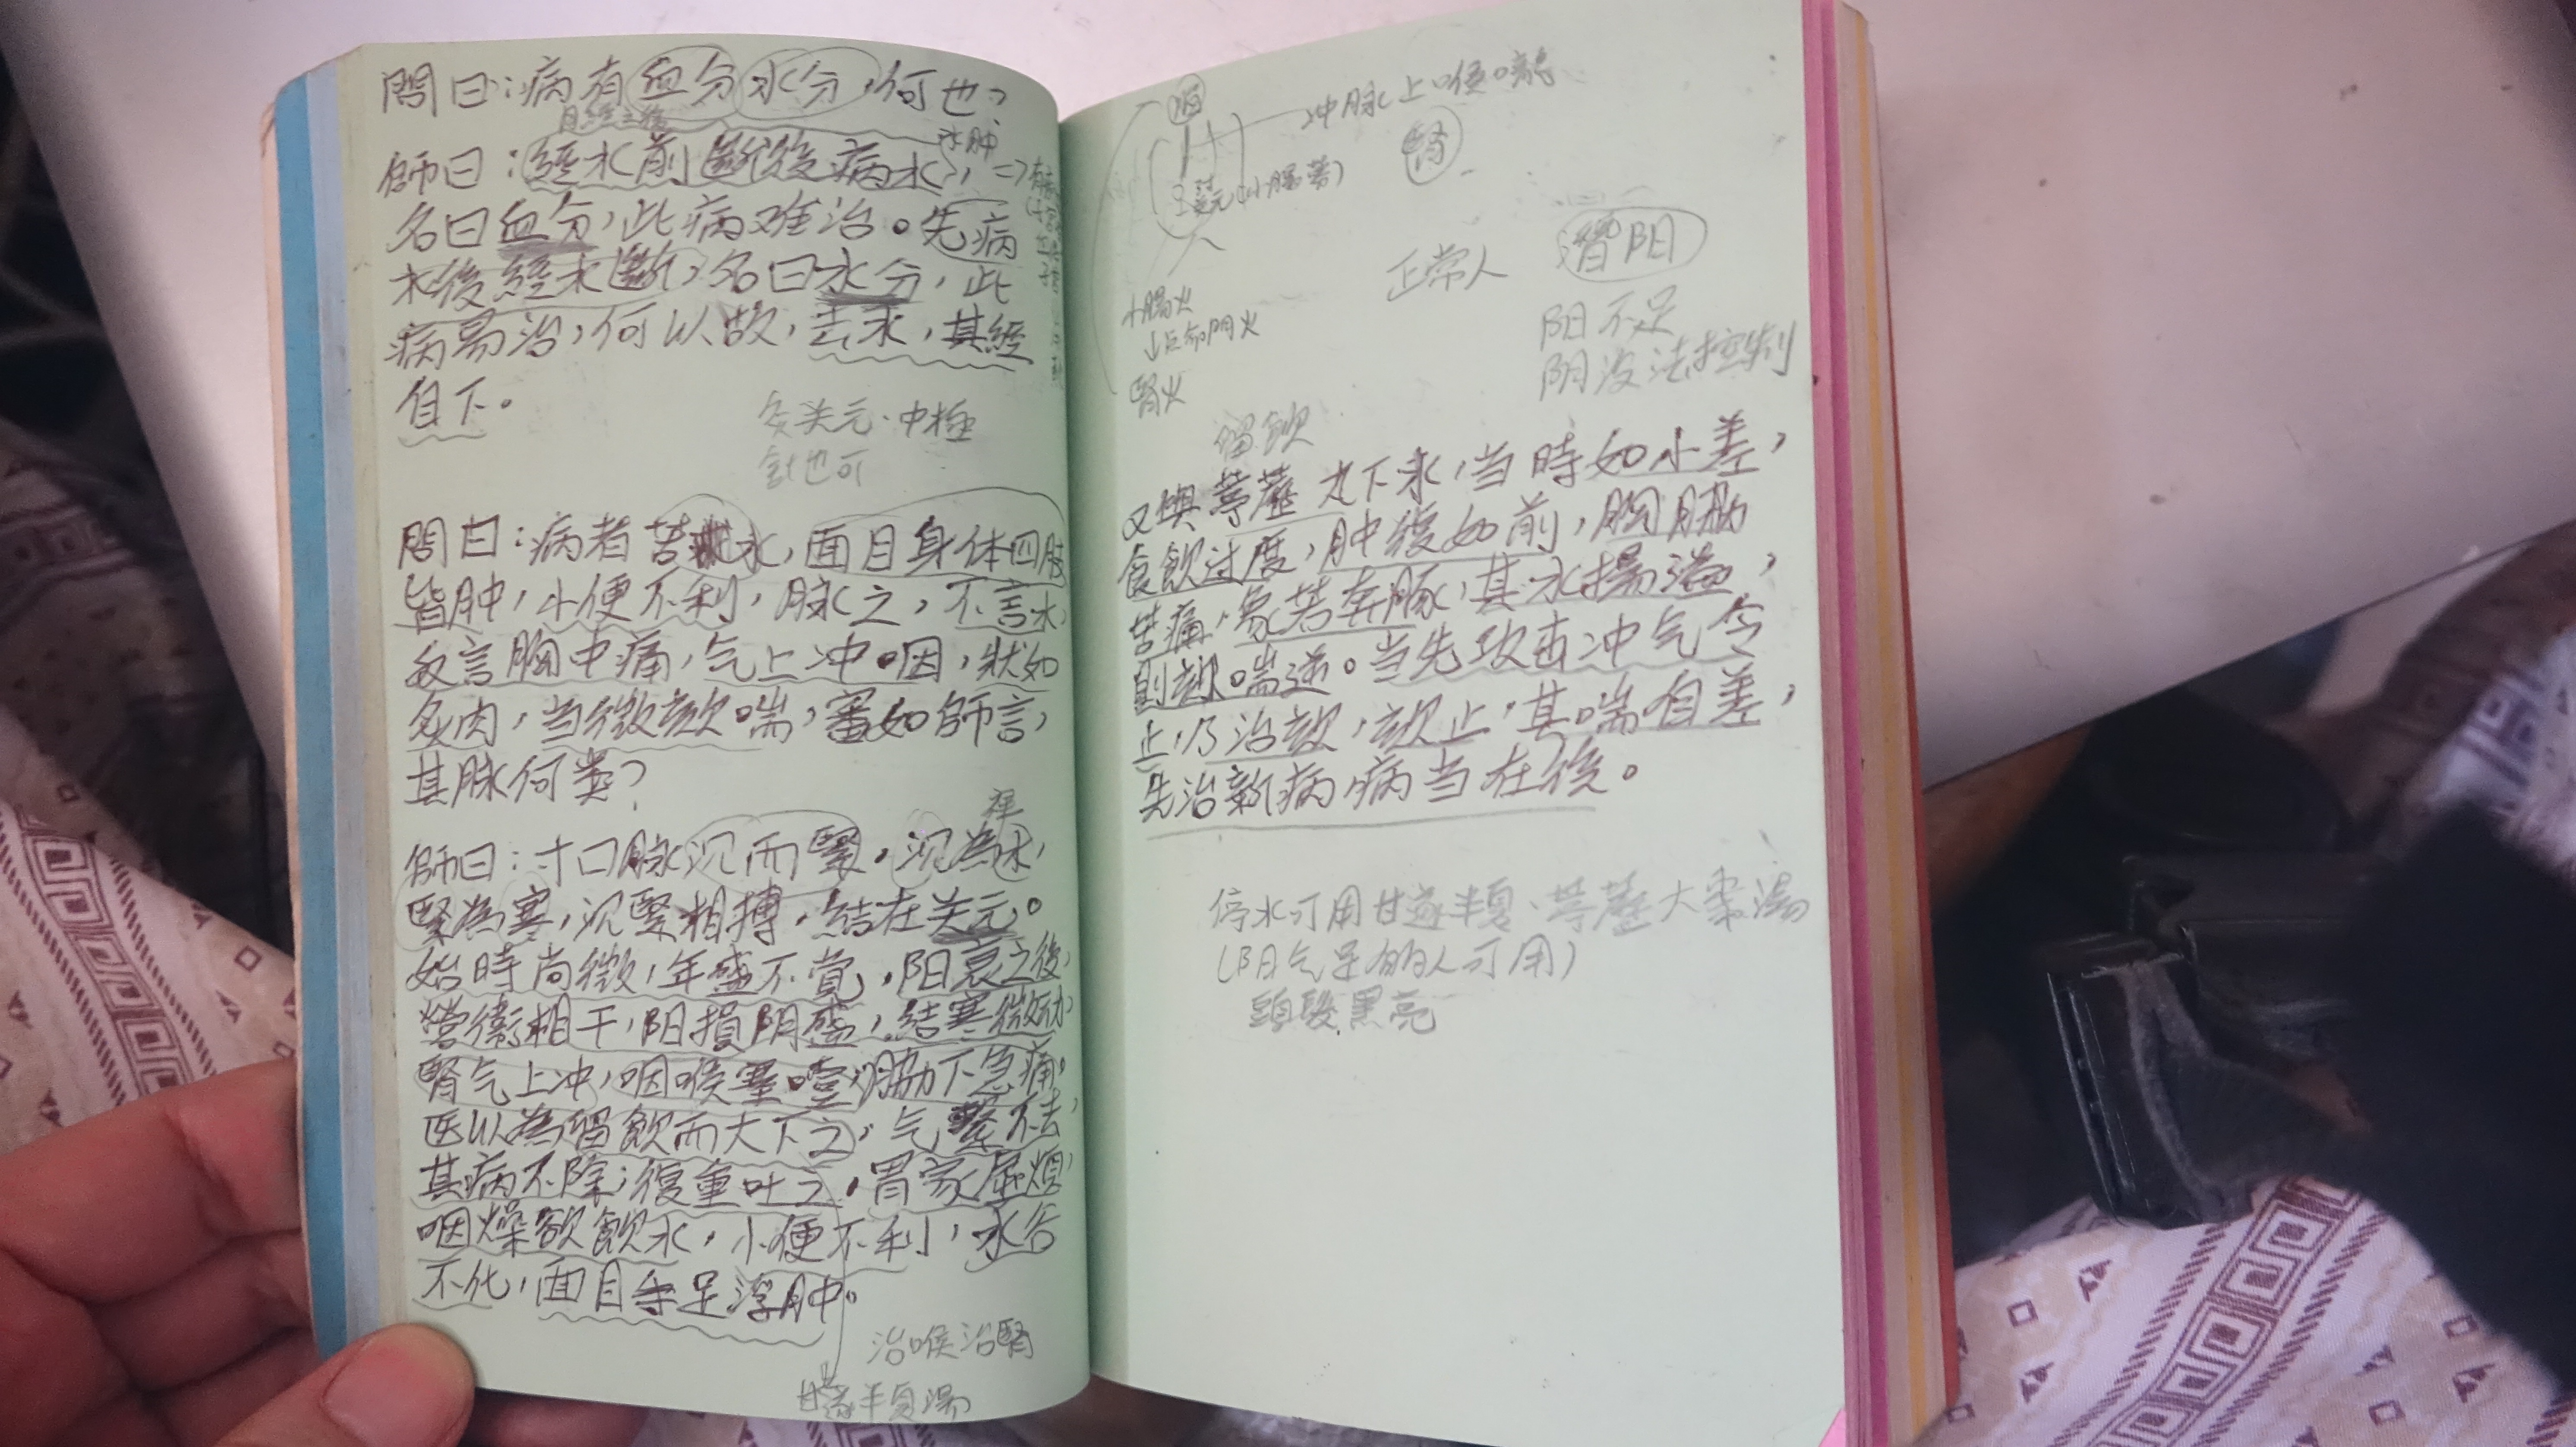 問曰:病有血分水分,何也?
水肿
師曰:經水前斷後病水,⇒
名曰血分,此病难治。先病
水後經水斷,名曰水分,此
病易治,何以故,去水,其經
自下。
灸关元·中極
針也可
問曰:病者苦水,面目身体四肢
皆肿,小便不利,脉之,不言水,
反言胸中痛,气上冲咽,狀如
炙肉,当微欬喘,審如師言,
其脉何类?
師曰:寸口脉沉而緊,沉為水,
緊為寒,沉緊相搏,結在关元。
始時尚微,年盛不覚,阳衰之後,
營衛相干,阳損阴盛,結寒微动,
腎气上冲,咽喉塞噎,脇下急痛。
医以為留飲而大下之,气緊不去,
其病不除;復重吐之,胃家虛烦,
咽燥欲飲水,小便不利,水谷
不化,面目手足浮肿。
治喉治腎
甘遂半夏湯
冲脉上喉嚨
腎
关元(小腸募)
正常人 潛阳
阳不足
阴没法控制
小腸火
↓后命門火
腎火
留飲
又與葶藶丸下水,当時如小差,
食飲过度,肿復如前,胸脇
苦痛,象若奔豚,其水揚溢,
則欬喘逆。当先攻击冲气令
止,乃治欬,欬止,其喘自差,
先治新病,病当在後。
停水可用甘遂半夏、葶藶大棗湯
(阳气足的人可用)
頭髮黑亮